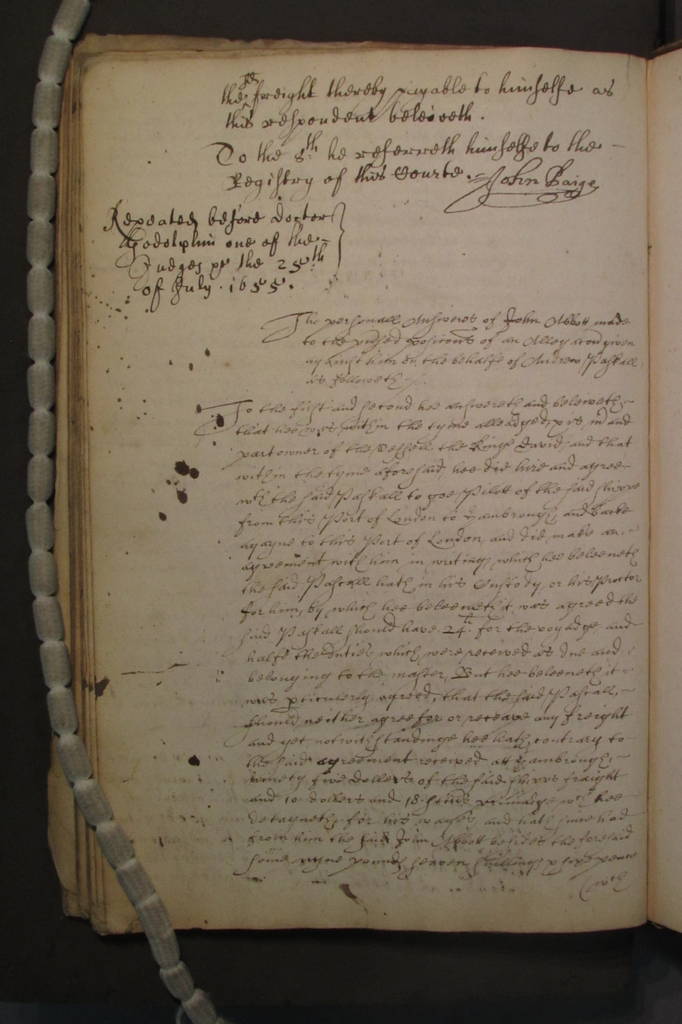 the freight thereby payable to himselfe as
this respondent beleeveth.
To the 8th he referreth himselfe to the
Registry of this Courte. John Paige
Repeated before Doctor
Godolphin one of the
Judges the 25th
of July. 1655.
The personall Answeres of John Abbott made
to the positions of an Allegation given
against him on the behalfe of Andrew Paskall
as followeth
To the first and second hee answereth and beleeveth
that hee was within the tyme alleadged in and
part owner of the vessell the Kinge David and that
within the tyme aforesaid hee did hire and agree
with the said Paskall to goe Pilott of the said shippe
from this Port of London to Hambrough and backe
agayne to this Port of London, and did make an
agreement with him in writing, which hee beleeveth
the said Paskall hath in his Custody, or his Proctor
for him, by which hee beleeveth it was agreed the
said Paskall should have 24li for the voyadge and
halfe the duties which were receeved as due and
belonging to the master, But hee beleeveth it
was perticularly agreed, that the said Paskall
should neither agree for or receave any freight
and yet notwithstandinge hee hath contrary to
his said agreement receeved att Hambrough
ninety five Dollers of the said shipps fraight
and 10 dollers and 18 primadge which hee
detayneth for his wages and hath since had
from him the said John Abbott besides the foresaid
some nyne pounds seaven shillings sixe pence